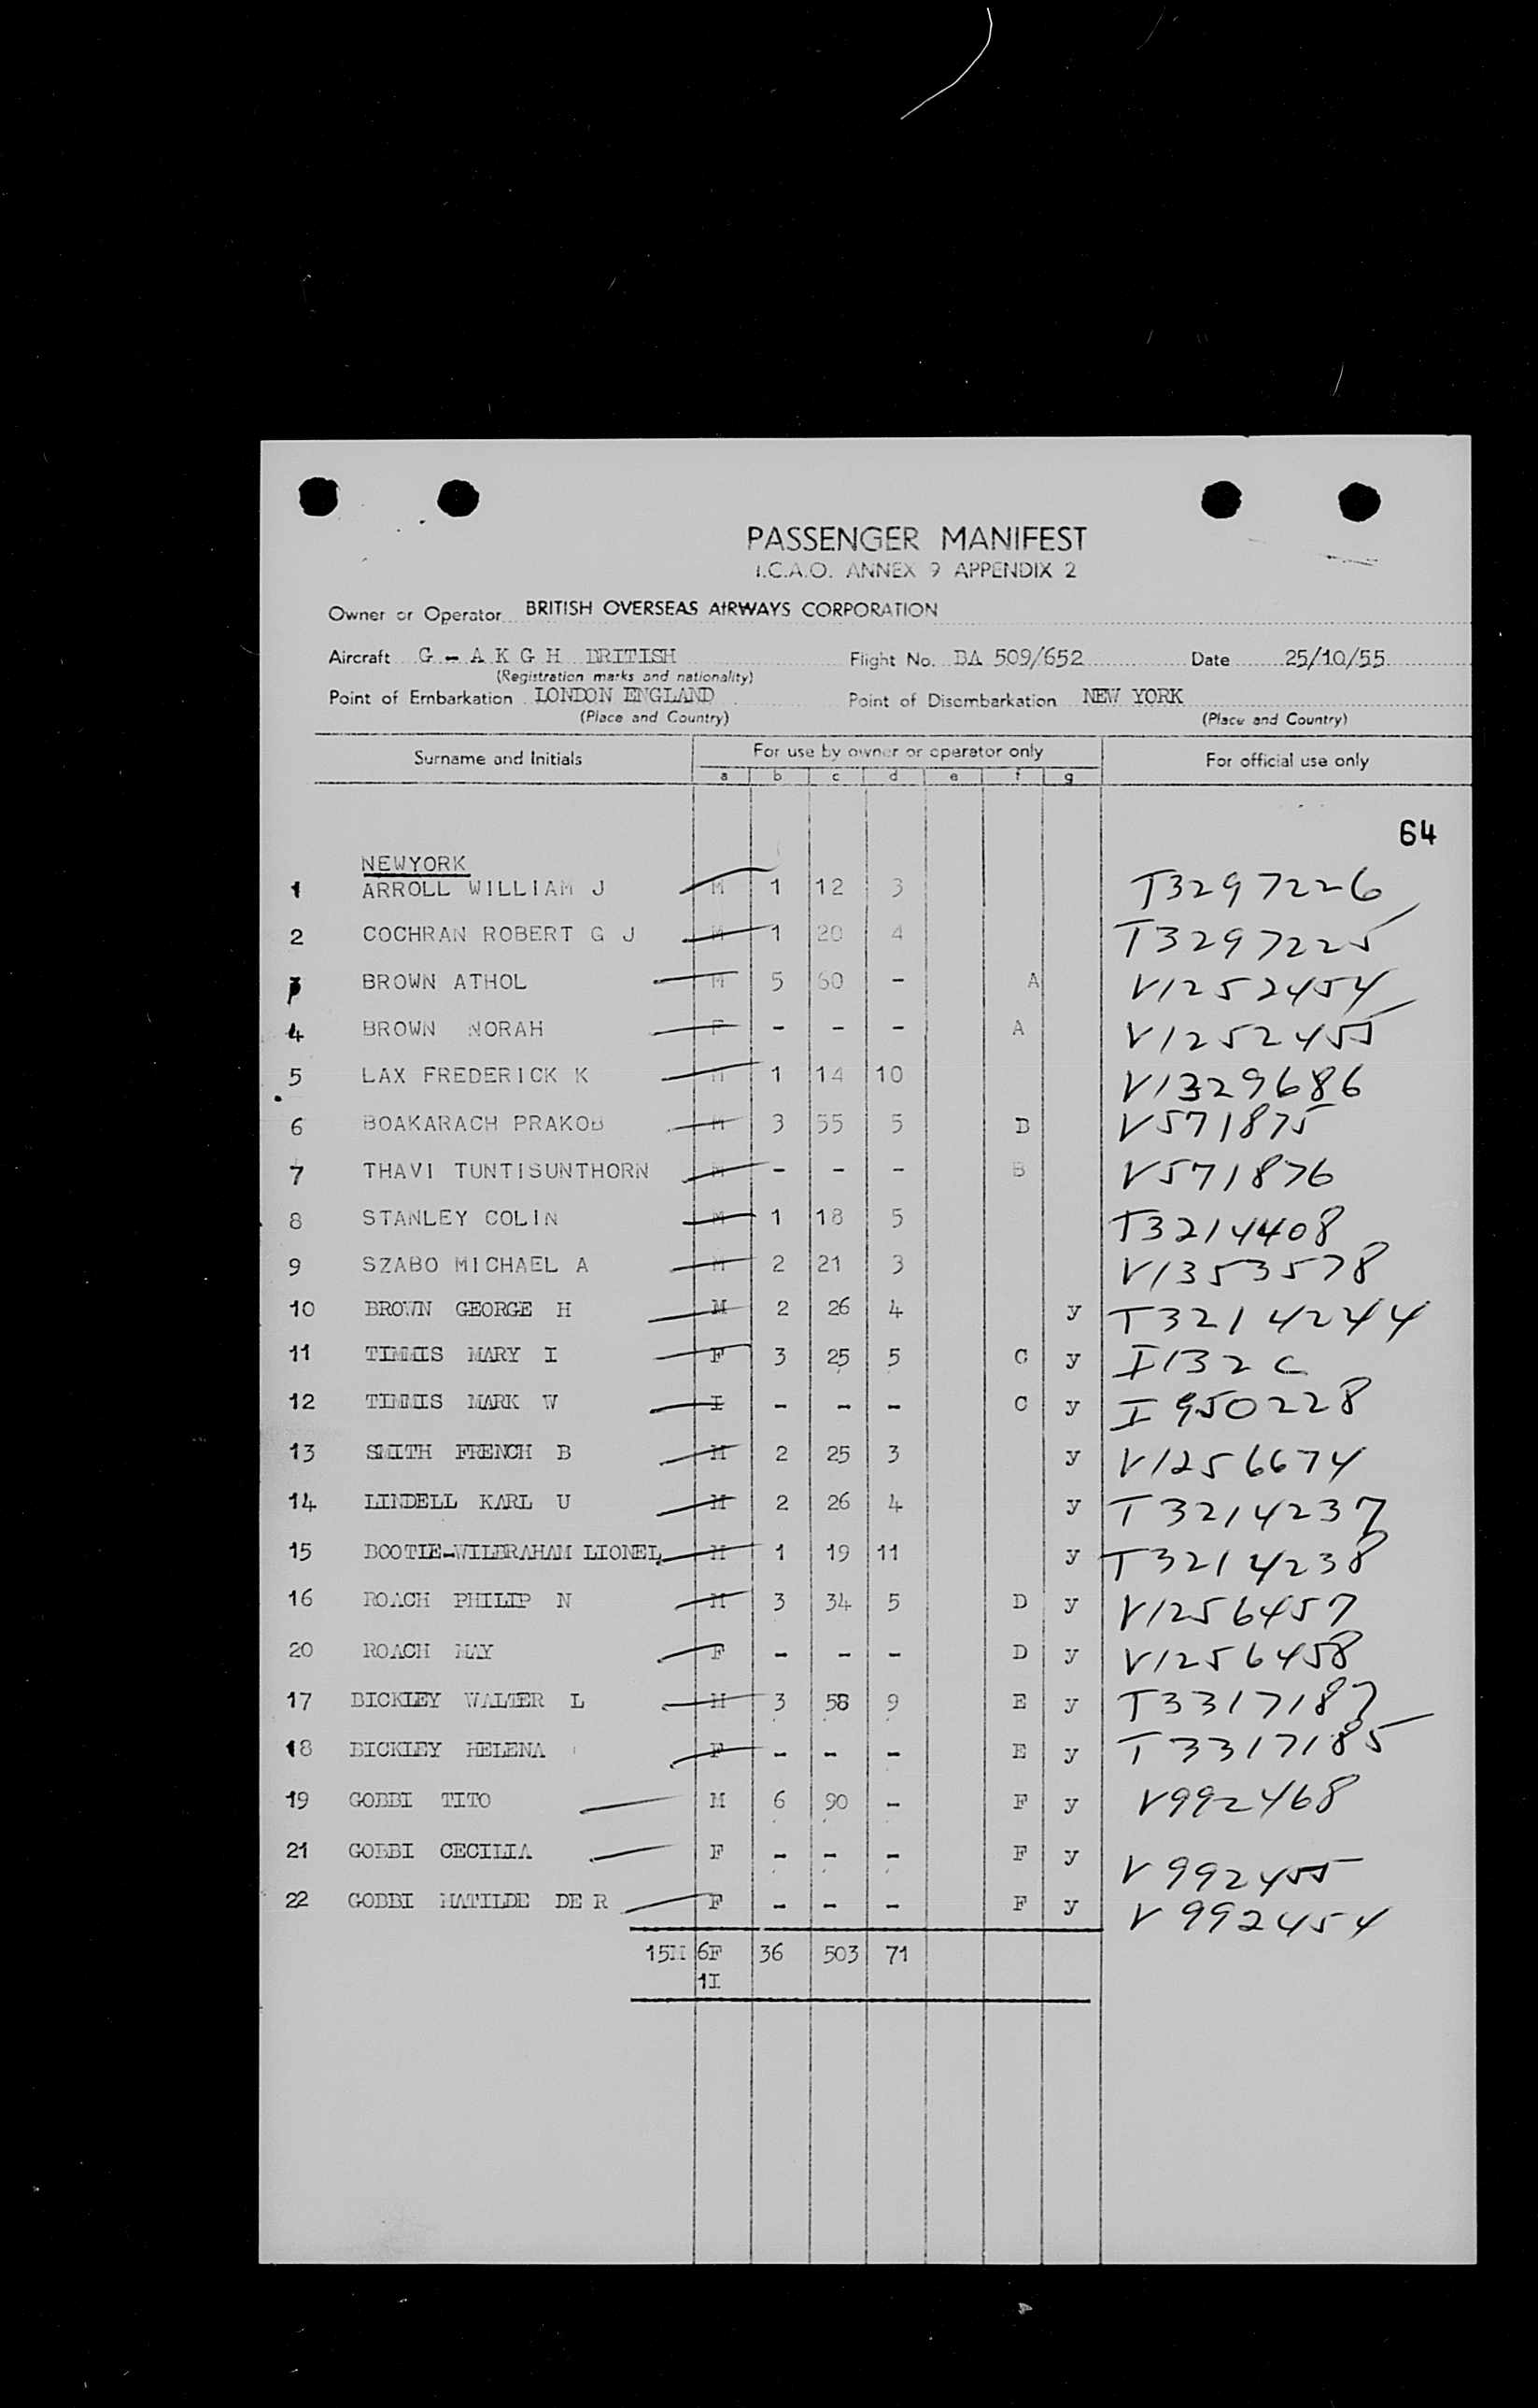 PASSENGER MANIFEST
I.C.A.O. ANNEX 9 APPENDIX 2
Owner or Operator BRITISH OVERSEAS AIRWAYS CORPORATION
Aircraft G - A K G H BRITISH Flight No. BA 509/652 Date 25/10/55
(Registration marks and nationality)
Point of Embarkation LONDON ENGLAND Point of Disembarkation NEW YORK
(Place and Country) (Place and Country)
Surname and Initials For use by owner or operator only For official use only
a b c d e f g
64
NEWYORK
1 ARROLL WILLIAM J M 1 12 3 T3297226
2 COCHRAN ROBERT G J M 1 20 4 T3297225
3 BROWN ATHOL M 5 60 - A V1252454
4 BROWN NORAH F - - - A V1252455
5 LAX FREDERICK K M 1 14 10 V1329686
6 BOAKARACH PRAKOB M 3 55 5 B V571875
7 THAVI TUNTISUNTHORN M - - - B V571876
8 STANLEY COLIN M 1 18 5 T3214408
9 SZABO MICHAEL A M 2 21 3 V1353578
10 BROWN GEORGE H M 2 26 4 y T3214244
11 TIMMIS MARY I F 3 25 5 C y I132C
12 TIMMIS MARK W I - - - C y I950228
13 SMITH FRENCH B M 2 25 3 y V1256674
14 LINDELL KARL U M 2 26 4 y T3214237
15 BOOTIE-WILBRAHAM LIONEL M 1 19 11 y T3214238
16 ROACH PHILIP N M 3 34 5 D y V1256457
20 ROACH MAY F - - - D y V1256458
17 BICKLEY WALTER L M 3 58 9 E y T3317187
18 BICKLEY HELENA F - - - E y T3317185
19 GOBBI TITO M 6 90 - F y V992468
21 GOBBI CECILIA F - - - F y V992455
22 GOBBI MATILDE DE R F - - - F y V992454
15M 6F 36 503 71
1I